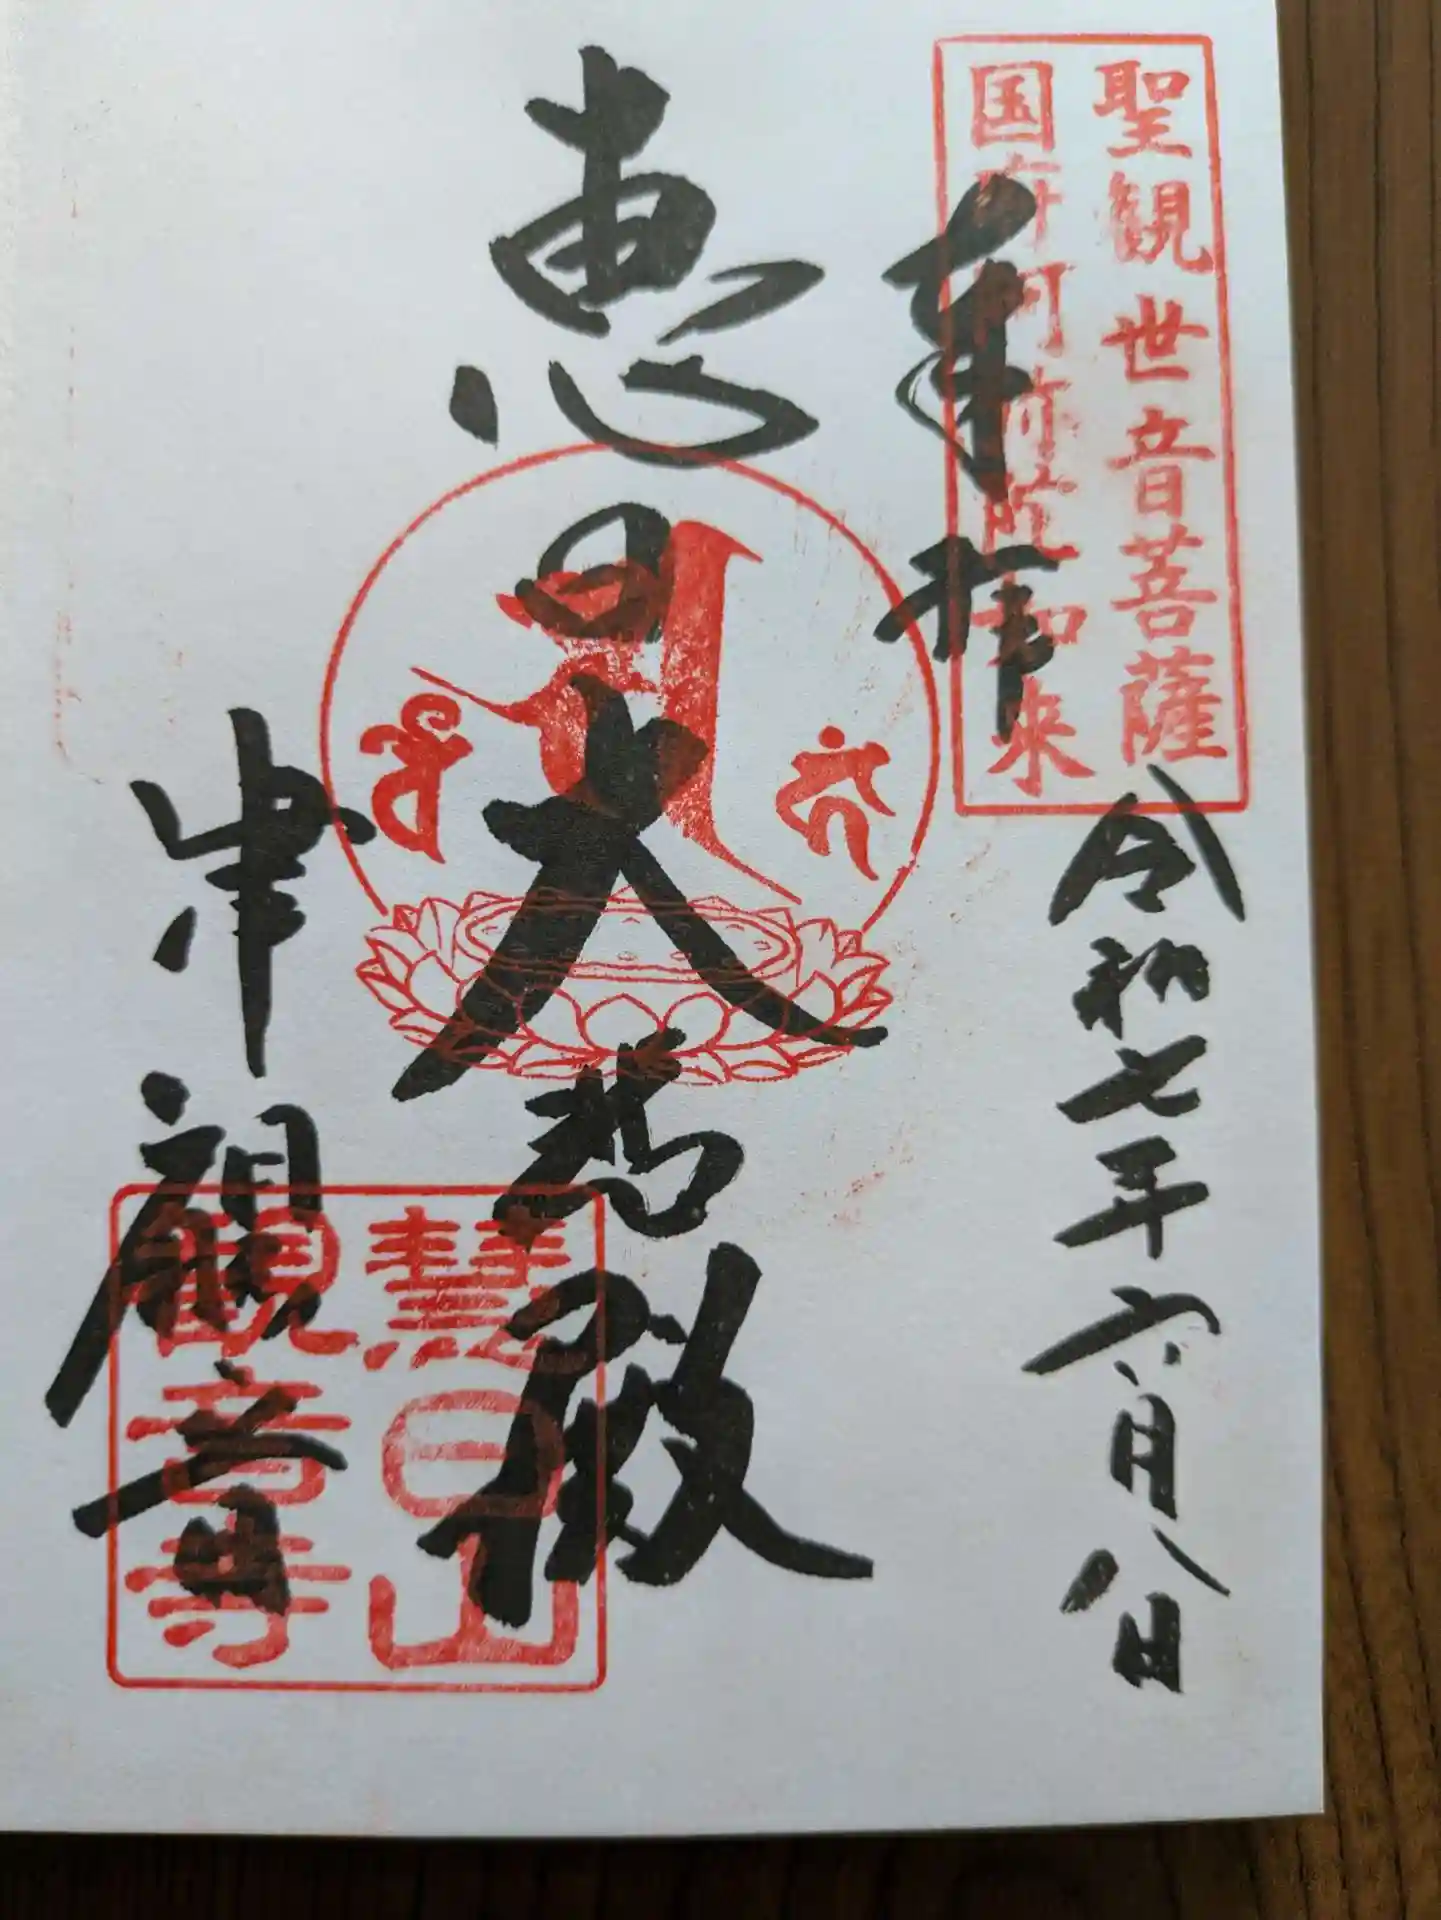 聖観世音菩薩
国府阿弥陀如来
奉拝
令和七年六月八日
恵日大悲殿
津観音
慧日山
観音寺